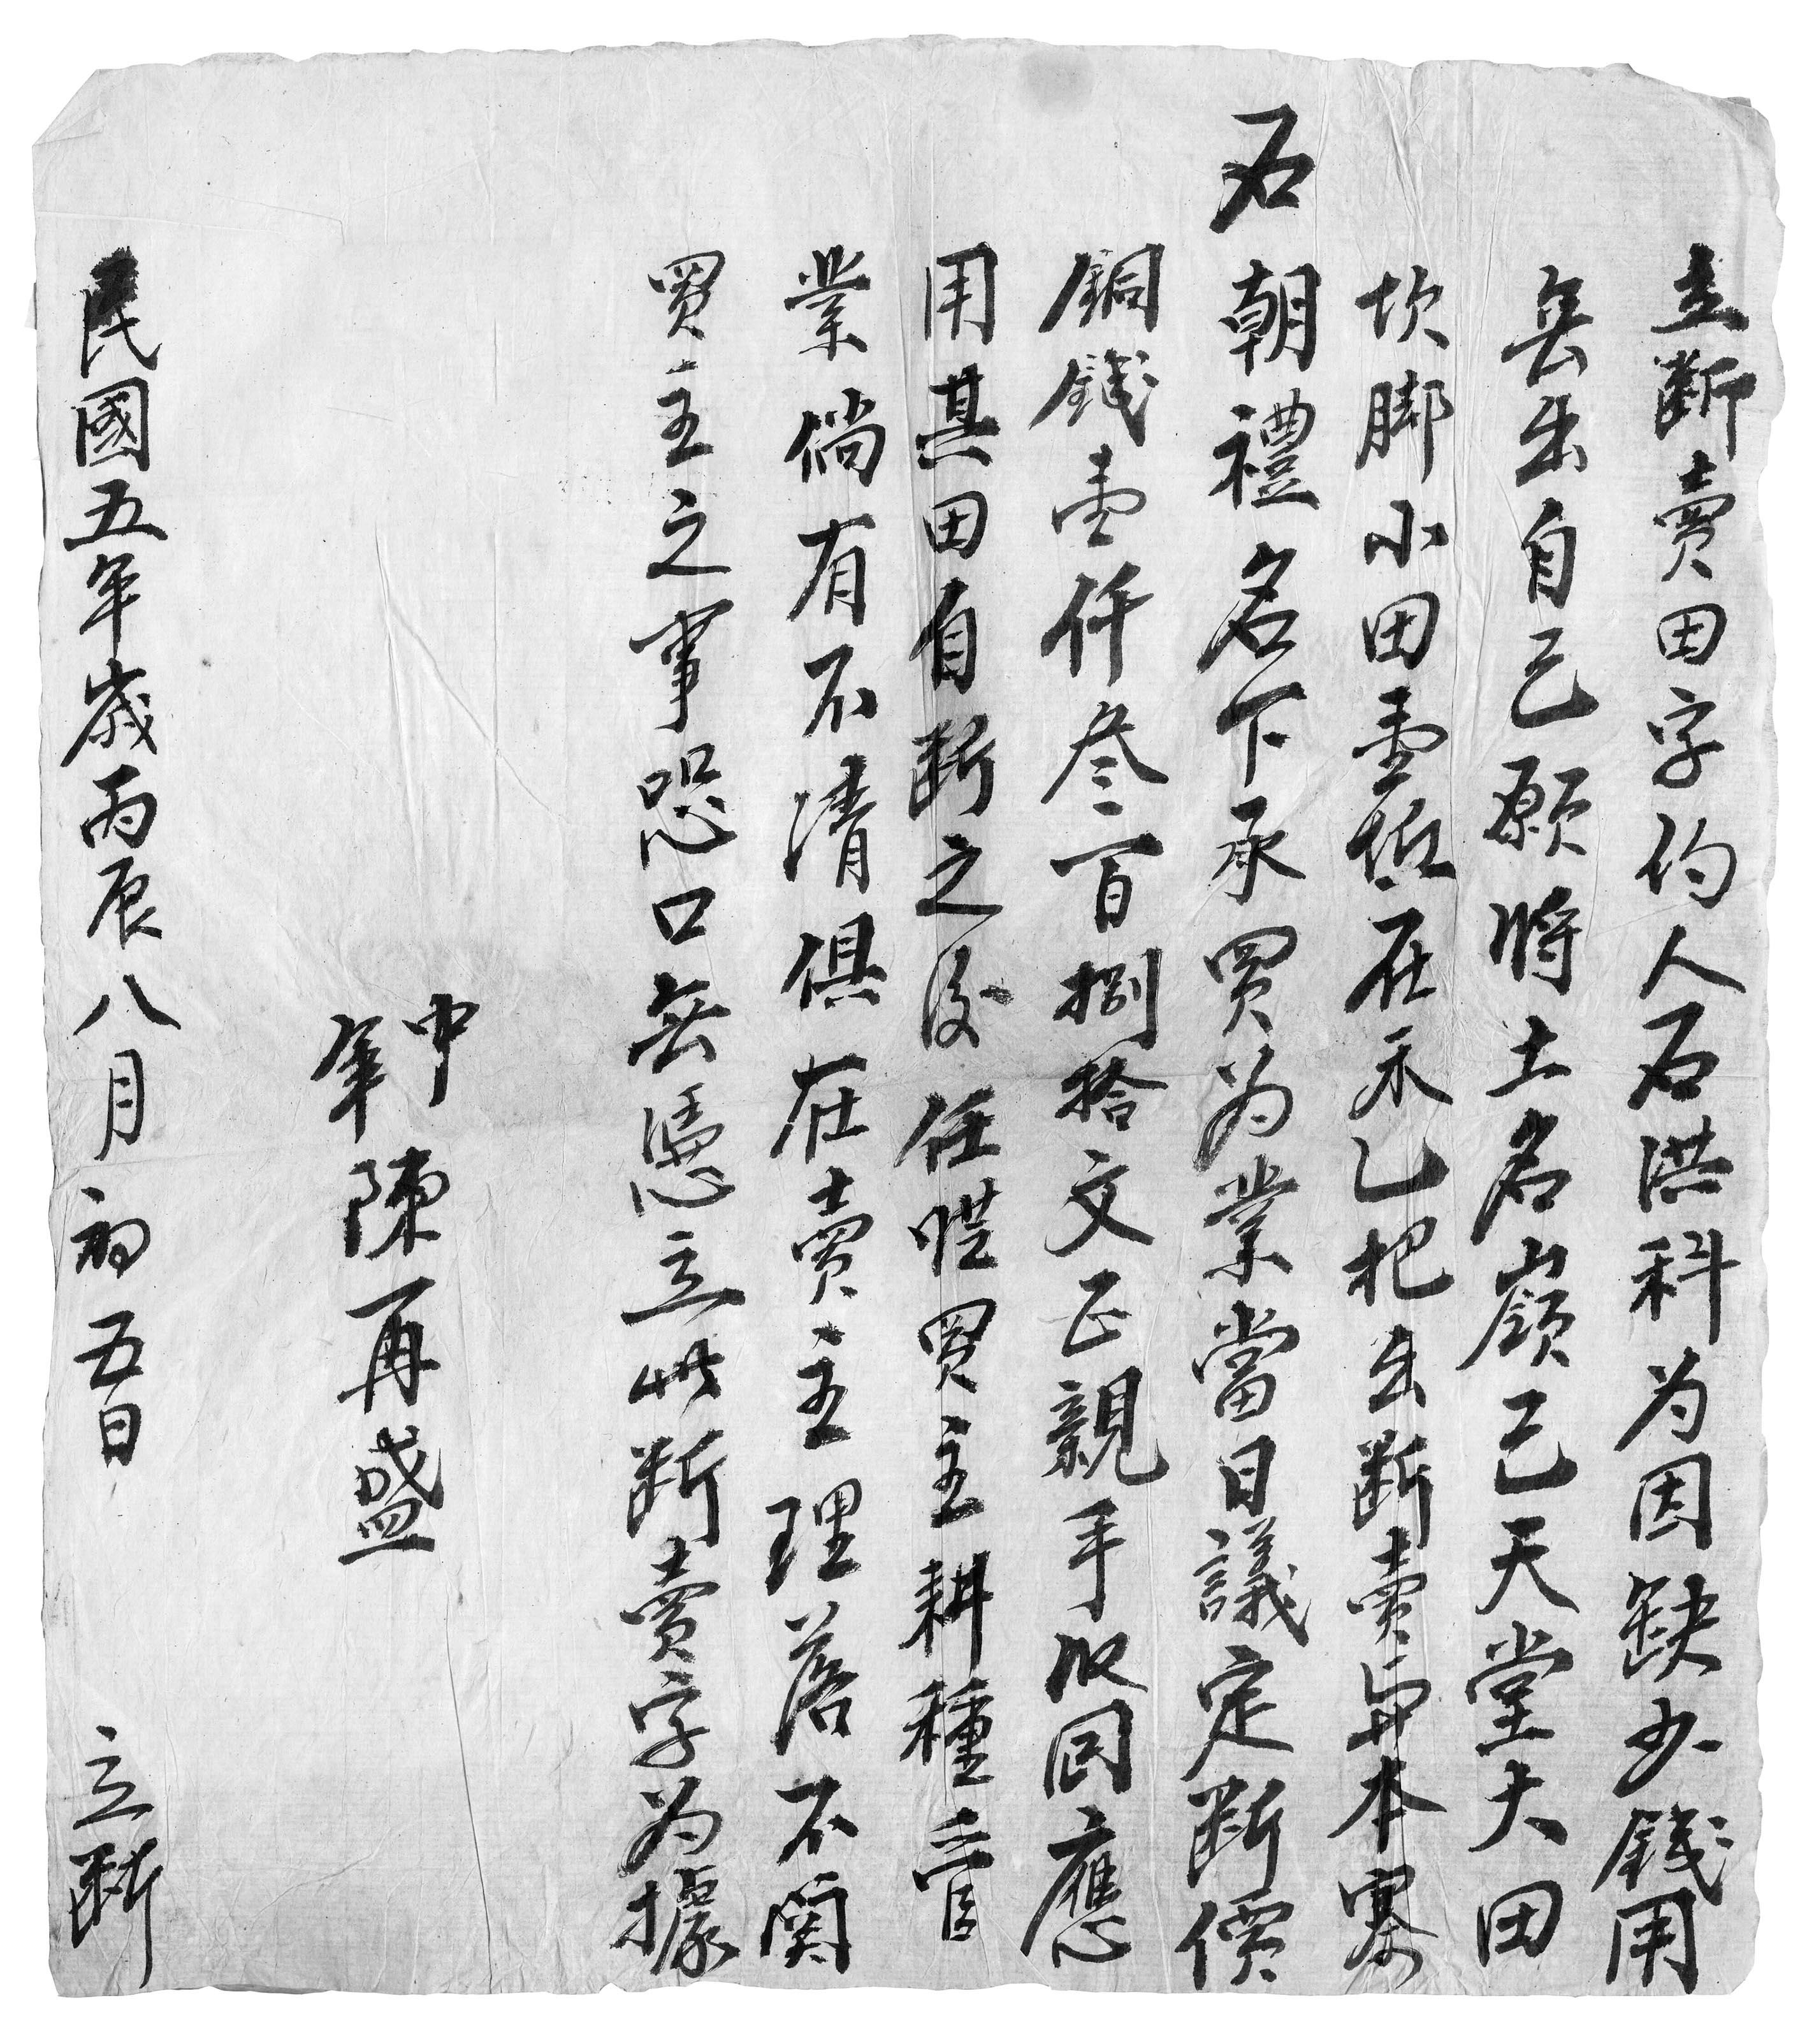 立断賣田字约人石洪科为因缺少錢用
無出自己願將土名嶺己天堂大田
坎脚小田壹坵在禾乙把出断賣與本寨
石朝禮名下承買为業當日議定断價
銅錢壹仟叄百捌拾文正親手收回應
用其田自断之後任凴買主耕種管
業倘有不清俱在賣主理落不関
買主之事恐口無憑立此断賣字为據
中
筆 陳再盛
民國五年歲丙辰八月初五日 立断